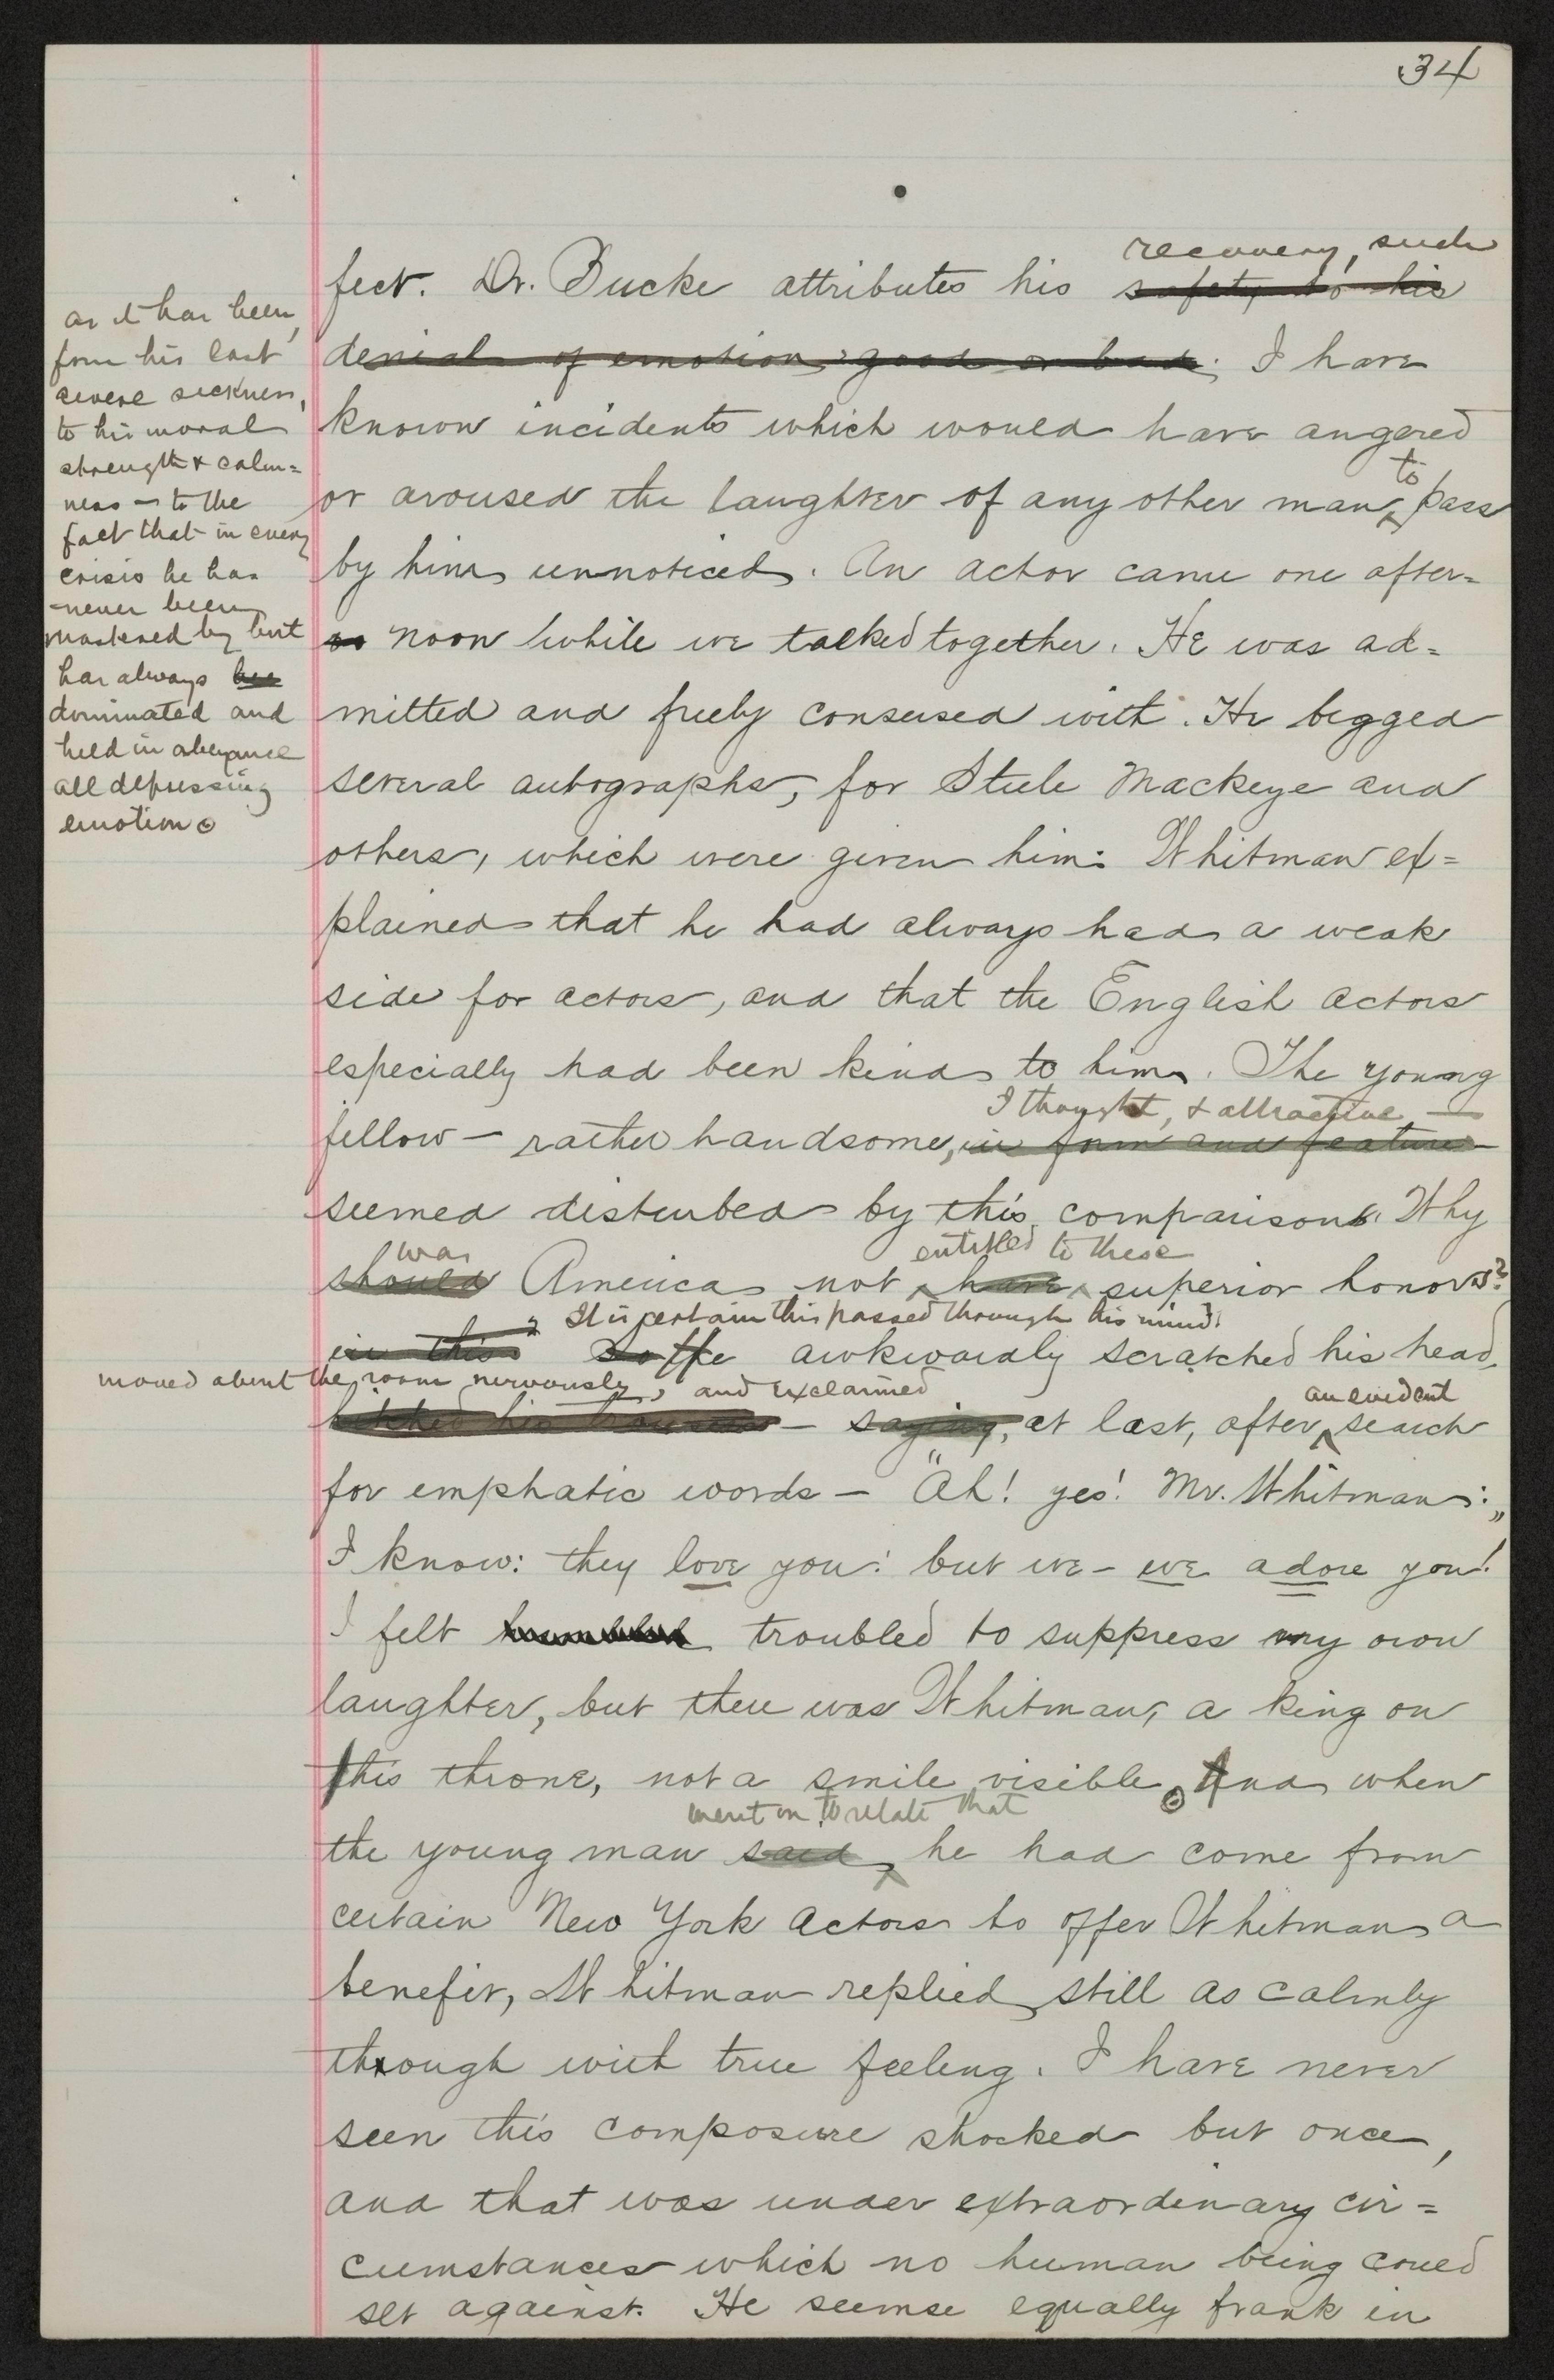 34
recovery, such
fect. Dr. Bucke attributes his safety to his
denial of emotion, good or bad; I have
known incidents which would have angered
to
or aroused the laughter of any other man, pass
by him unnoticed. An actor came one after=
noon while we talked together. He was ad=
mitted and freely consersed with. He begged
several autographs, for Steele Mackeye and
others, which were given him: Whitman ex=
plained that he had always had a weak
side for actors, and that the English actors
especially had been kind to him. The young
I thought, & attractive —
fellow — rather handsome, in form and feature —
seemed disturbed by this comparison. Why
was entitled to these
should America not have superior honors?
It is certain this passed through his mind.
in this So he awkwardly scratched his head,
moved about the room nervously, and exclaimed an evident
hitched his trousers — saying, at last, after search
for emphatic words — "Ah! yes! Mr. Whitman:
I know: they love you: but we — we adore you!"
I felt troubled to suppress my own
laughter, but there was Whitman, a king on
his throne, not a smile visible. And when
went on to relate that
the young man said, he had come from
certain New York actors to offer Whitman a
benefit, Whitman replied still as calmly
through with true feeling. I have never
seen this composure shocked but once,
and that was under extraordinary cir=
cumstances which no human being could
set against. He seemse equally frank in
as it has been,
from his last
severe sickness,
to his moral
strength & calm=
ness — to the
fact that in every
crisis he has
never been
mastered by but
has always bee
dominated and
held in abeyance
all depressing
emotion.